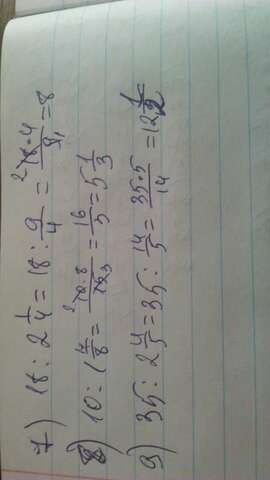 7) 18 : 2 1/4 = 18 : 9/4 = 18·4/9 = 8
8) 10 : 1 7/8 = 10·8/15 = 16/3 = 5 1/3
9) 35 : 2 4/5 = 35 : 14/5 = 35·5/14 = 12 1/2